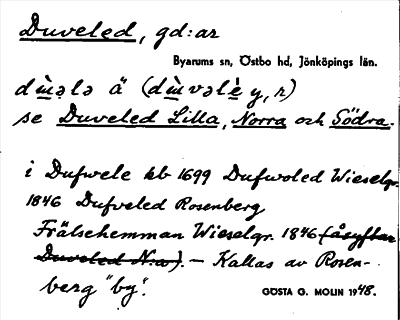 Duveled, gd:ar
Byarums sn, Östbo hd, Jönköpings län.
dɯ̀ələ ä (dɯ̀vəlè y, n)
se Duveled Lilla, Norra och Södra.
i Dufwele kb 1699 Dufwoled Wieselgr.
1846 Dufveled Rosenberg
Frälsehemman Wieselgr. 1846 (åsyftar
Duveled N:a). – Kallas av Rosen-
berg "by".
GÖSTA G. MOLIN 1948.